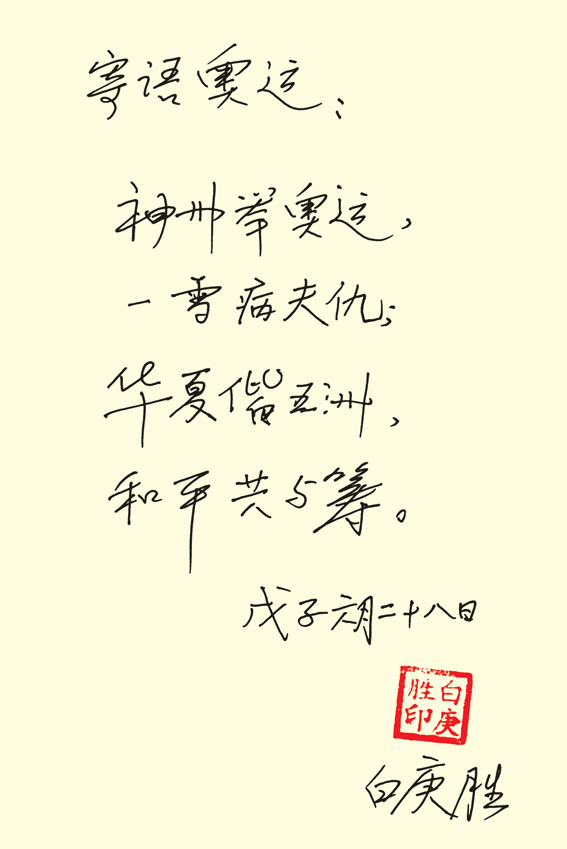 寄语奥运：
神州举奥运，
一雪病夫仇；
华夏偕五洲，
和平共与筹。
戊子六月二十八日
白庚胜印
白庚胜